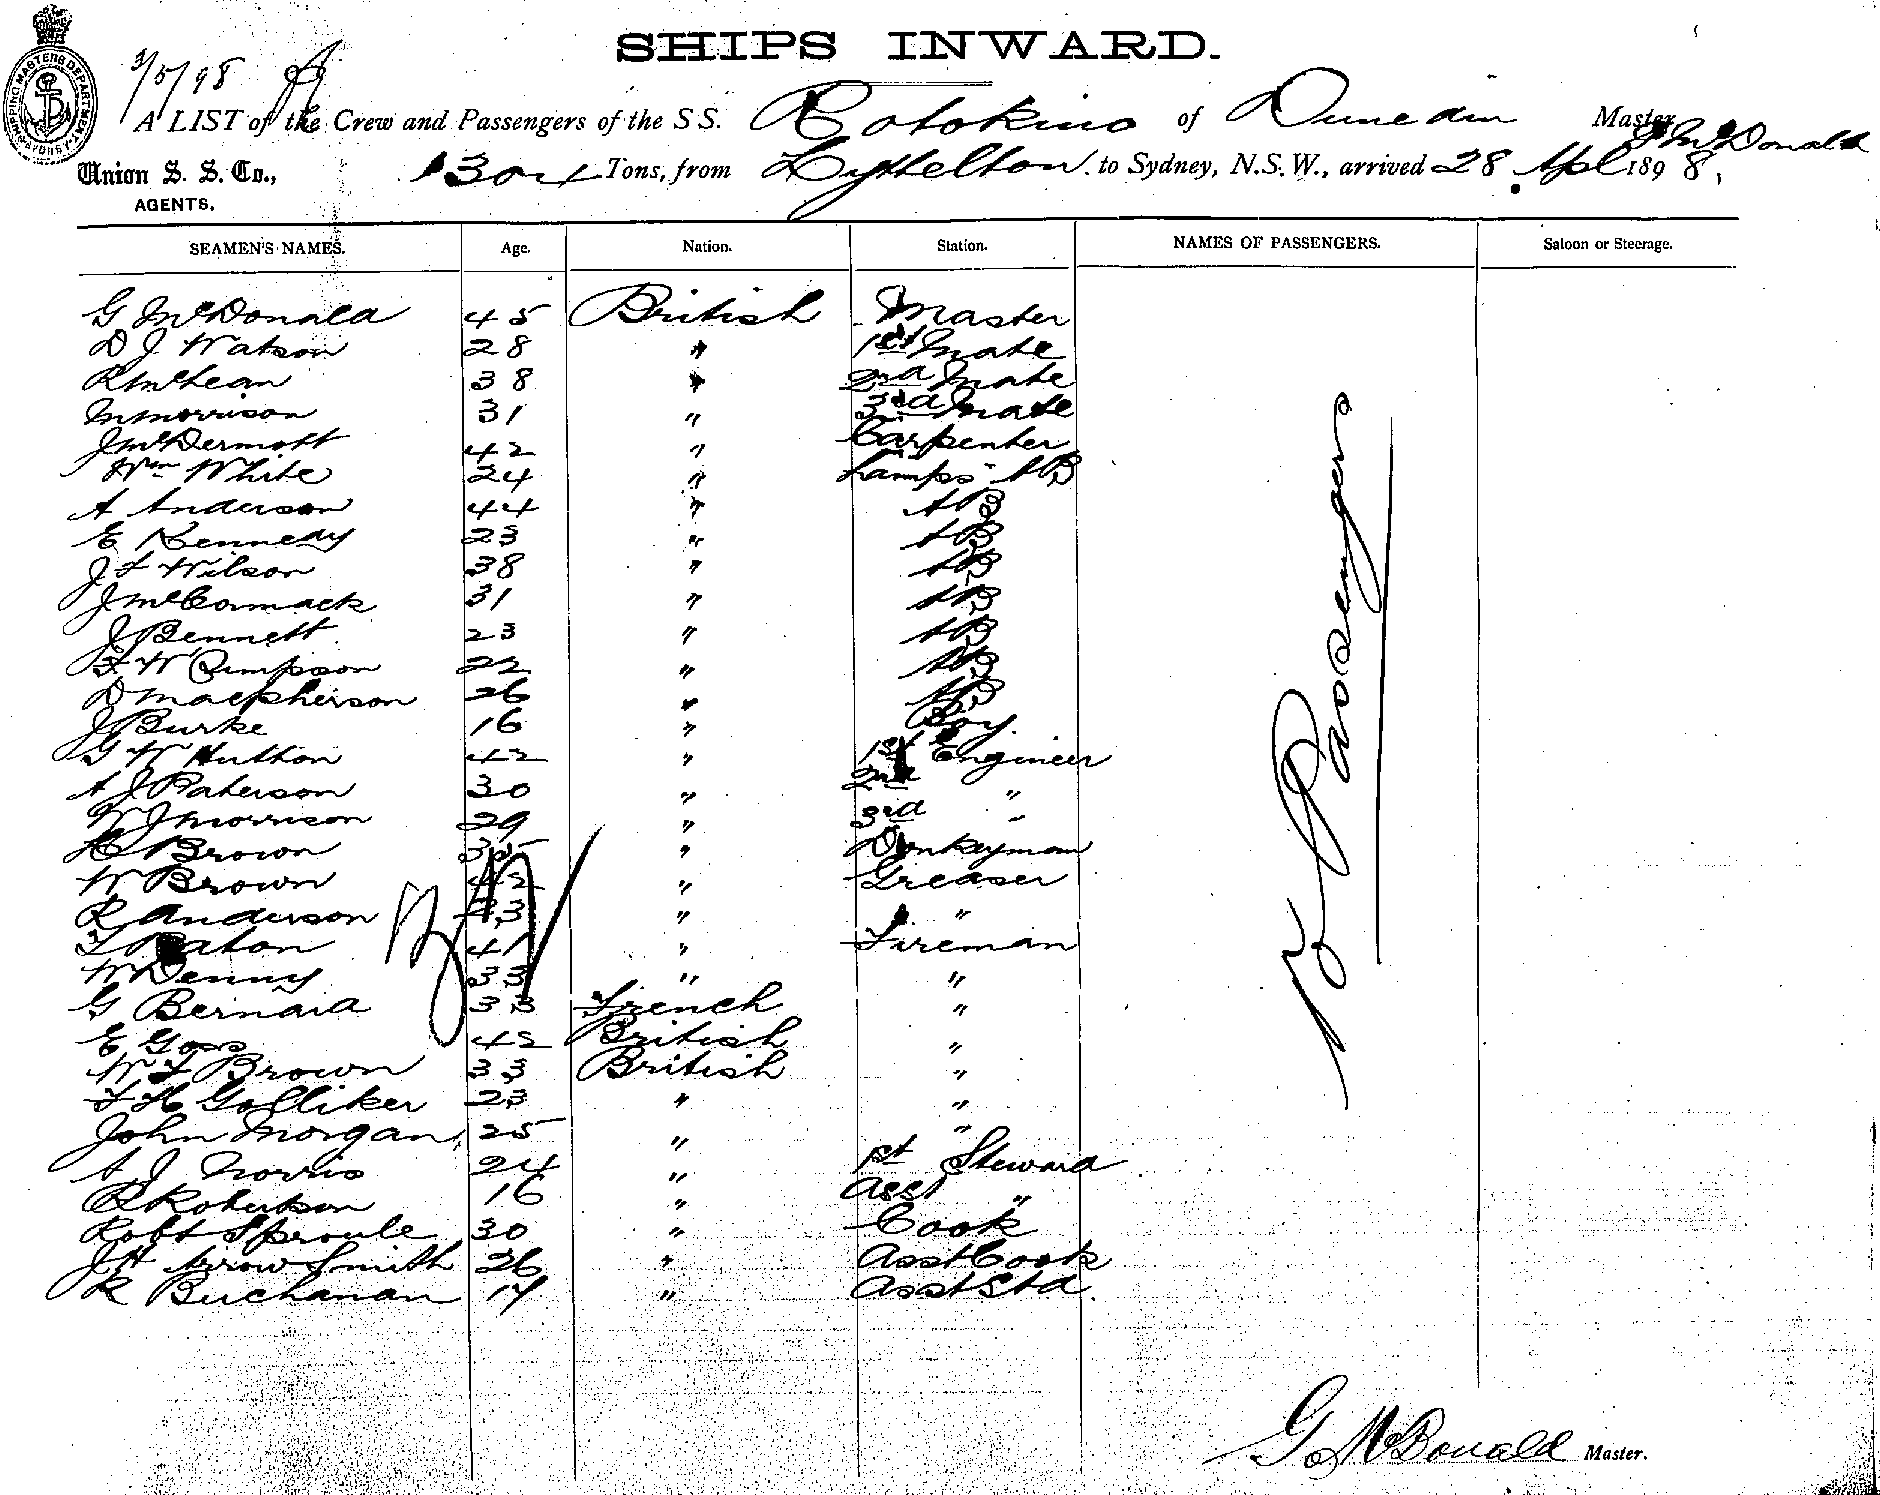 SHIPS INWARD.
3/5/98
A LIST of the Crew and Passengers of the S S. Rotokino of Dunedin Master G McDonald
Union S. S. Co., 1304 Tons, from Lyttelton to Sydney, N.S.W., arrived 28 Apl 1898,
AGENTS.
SEAMEN'S NAMES. Age. Nation. Station. NAMES OF PASSENGERS. Saloon or Steerage.
G McDonald 45 British Master
D J Watson 28 " 1st Mate
R McLean 38 " 2nd Mate
M Morrison 31 " 3rd Mate
J McDermott 42 " Carpenter
Wm White 24 " Lamps AB
A Anderson 44 " AB
E Kennedy 23 " AB
J F Wilson 38 " AB
J McCormack 31 " AB
J Bennett 23 " AB
F W 22 " AB
D Macpherson 26 " AB
J Burke 16 " Boy
G W Hutton 42 " 1st Engineer
A J Paterson 30 " 2nd "
W J Morrison 29 " 3rd "
H Brown 35 " Donkeyman
W Brown 42 " Greaser
R Anderson 23 " "
T Eaton 41 " Fireman
W Denny 33 " "
G Bernard 33 French "
E Goss 42 British "
W F Brown 33 British "
F H Golliker 23 " "
John Morgan 25 " "
A J Norris 24 " 1st Steward
R Robertson 16 " Asst "
Robt Sproule 30 " Cook
J H Arrow Smith 26 " Asst Cook
R Buchanan 17 " Asst Std.
No Passengers
G McDonald Master.